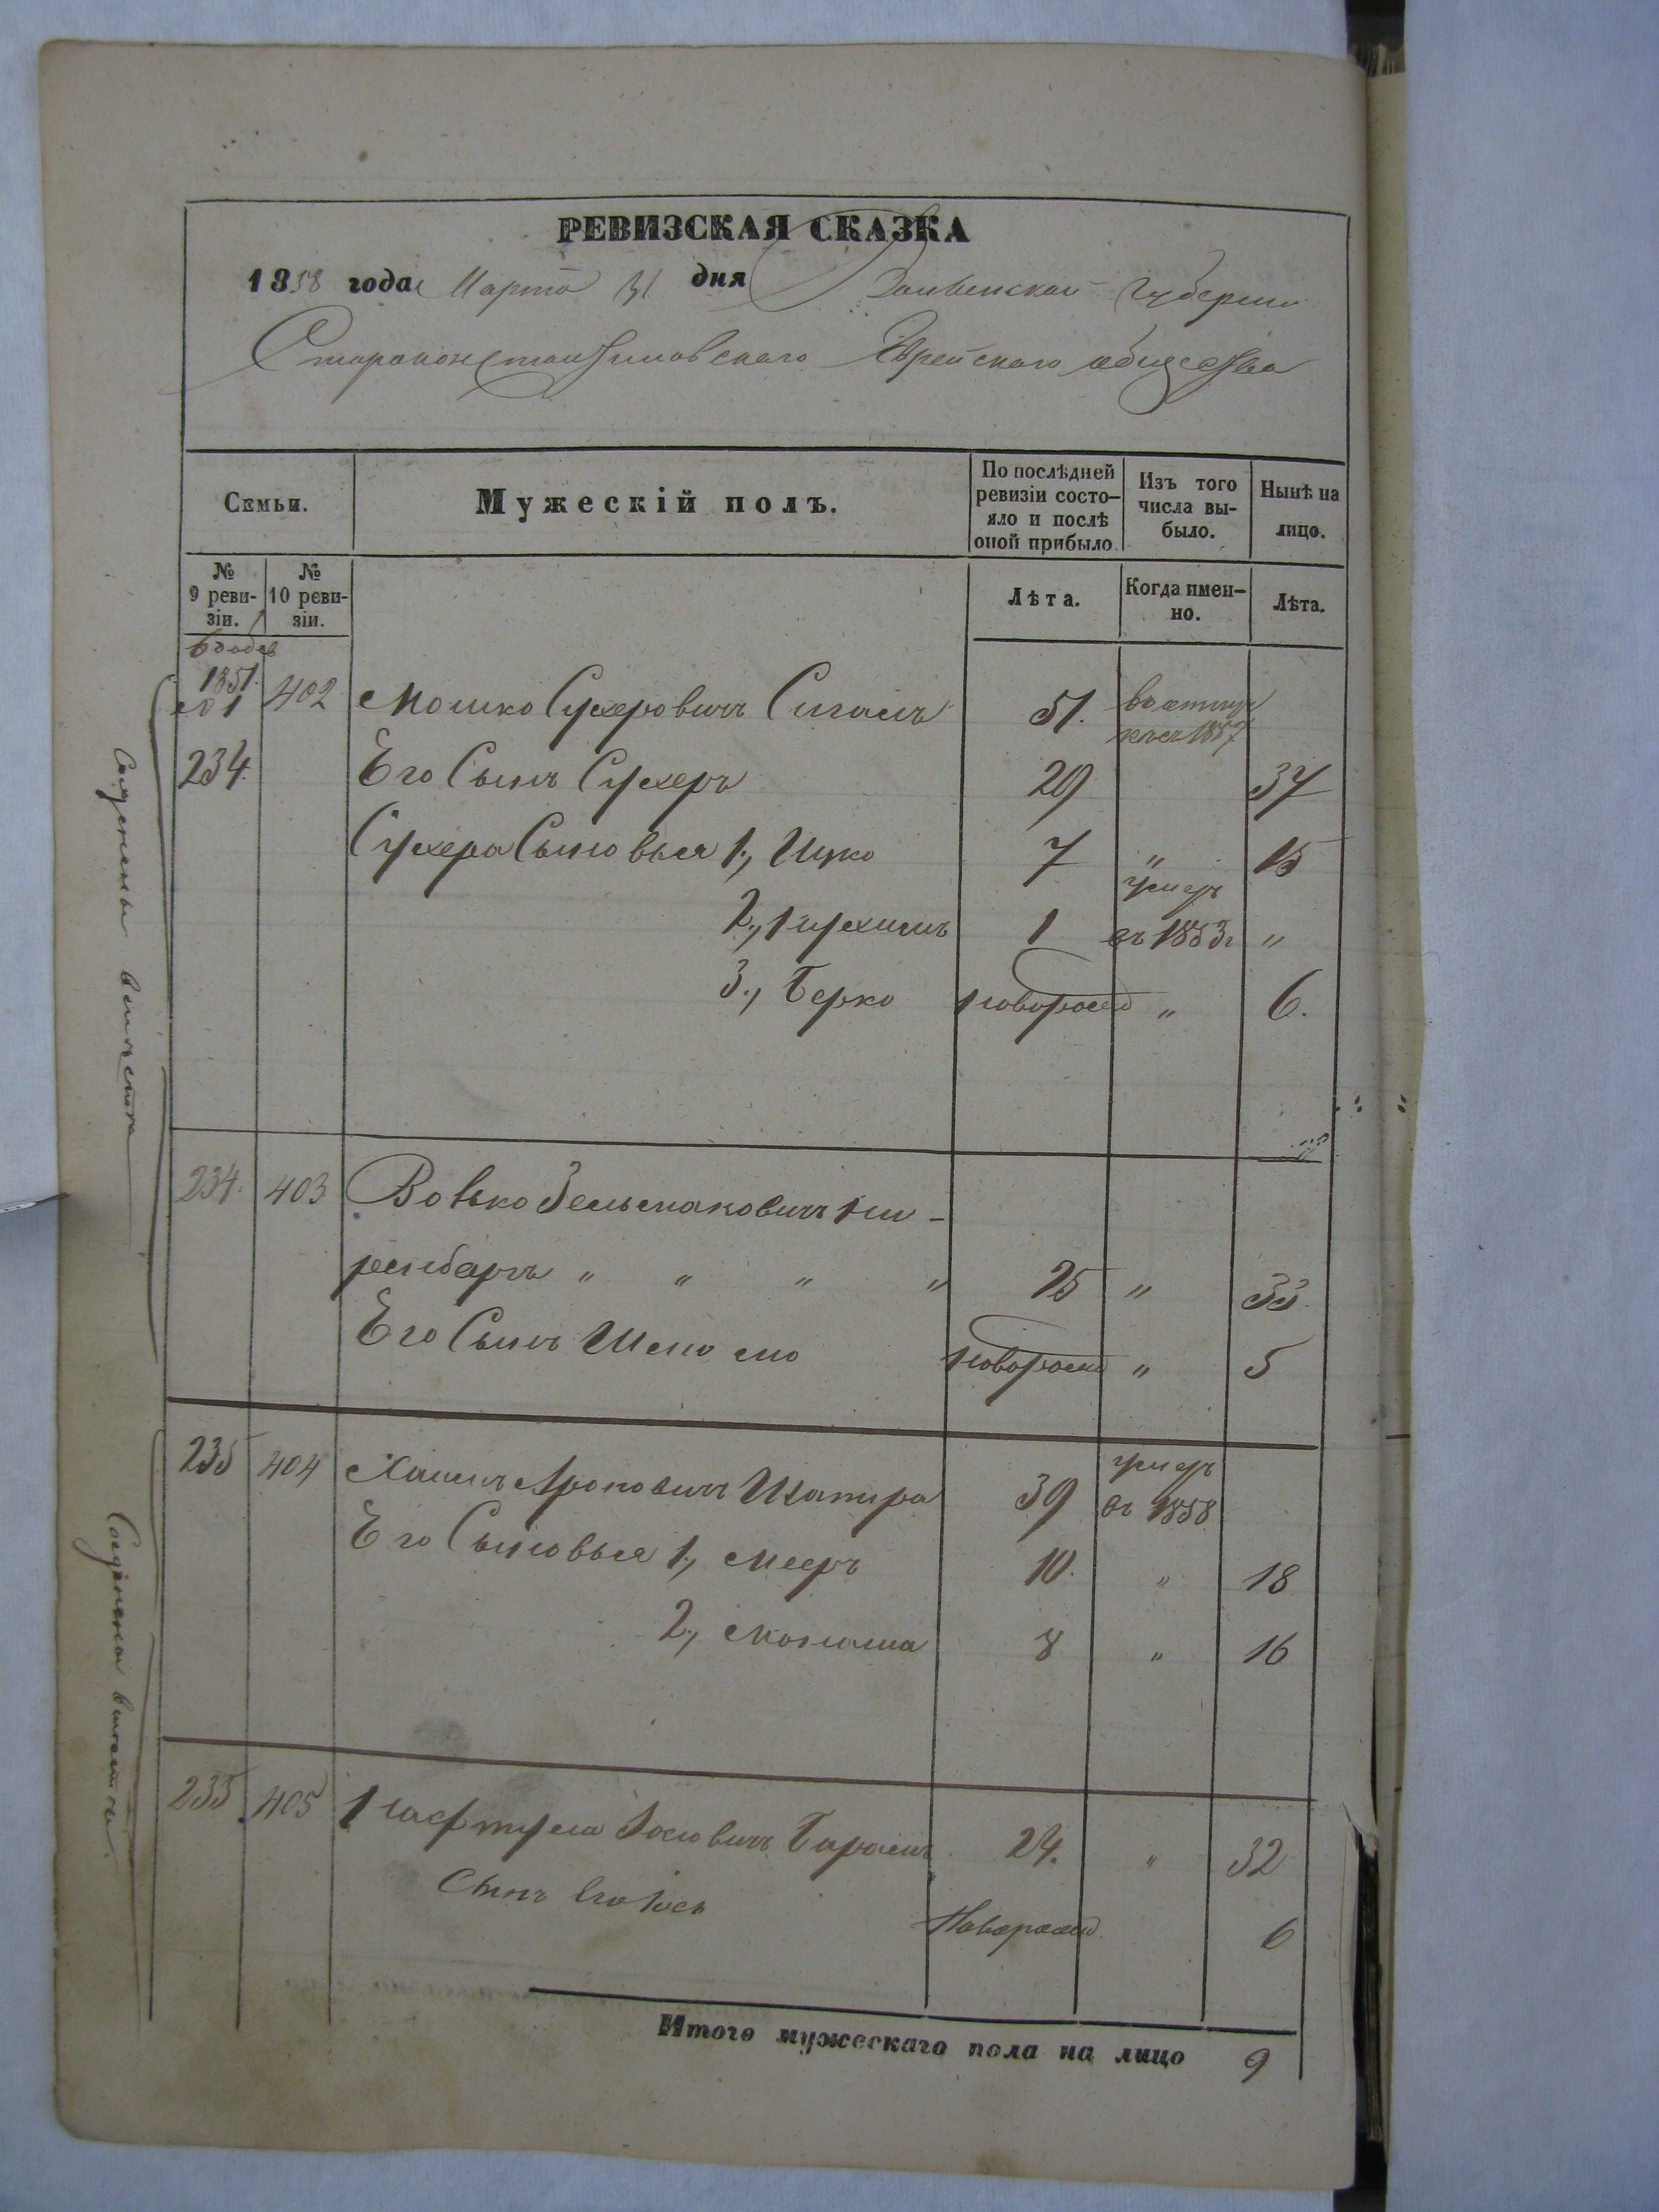 РЕВИЗСКАЯ СКАЗКА
1858 года Марта 31 дня Волынской Губерніи
Староконстантиновскаго Еврейскаго общества
Семьи.
Мужескій полъ.
По послѣдней ревизіи состо-
яло и послѣ
оной прибыло.
Изъ того
числа вы-
было.
Нынѣ на
лицо.
№
9 реви-
зіи.
№
10 реви-
зіи.
Лѣта.
Когда имен-
но.
Лѣта.
1851.
№ 1 402 Мошко Сухеровичъ Сигалъ 51. 1857
234. Его Сынъ Сухеръ 29 37
Сухера Сыновья 1., Ицко 7 " 15
2., Нухимъ 1 умеръ въ 1853г "
3., Берко новорожд " 6.
234. 403 Вовько Зельмановичъ Ни-
ренбергъ " " " " 25 " 33.
Его Сынъ новорожд " 5
235 404 Хаимъ Ароновичъ Шапира 39 умеръ въ 1858
Его Сыновья 1., Мееръ 10. " 18
2., Монаша 8 " 16
235. 405 Нафтула Іосіовичъ 24. " 32
Сынъ Его Іось Новорожд. 6
Соединены вмѣстѣ
Соединены вмѣстѣ
Итого мужескаго пола на лицо 9